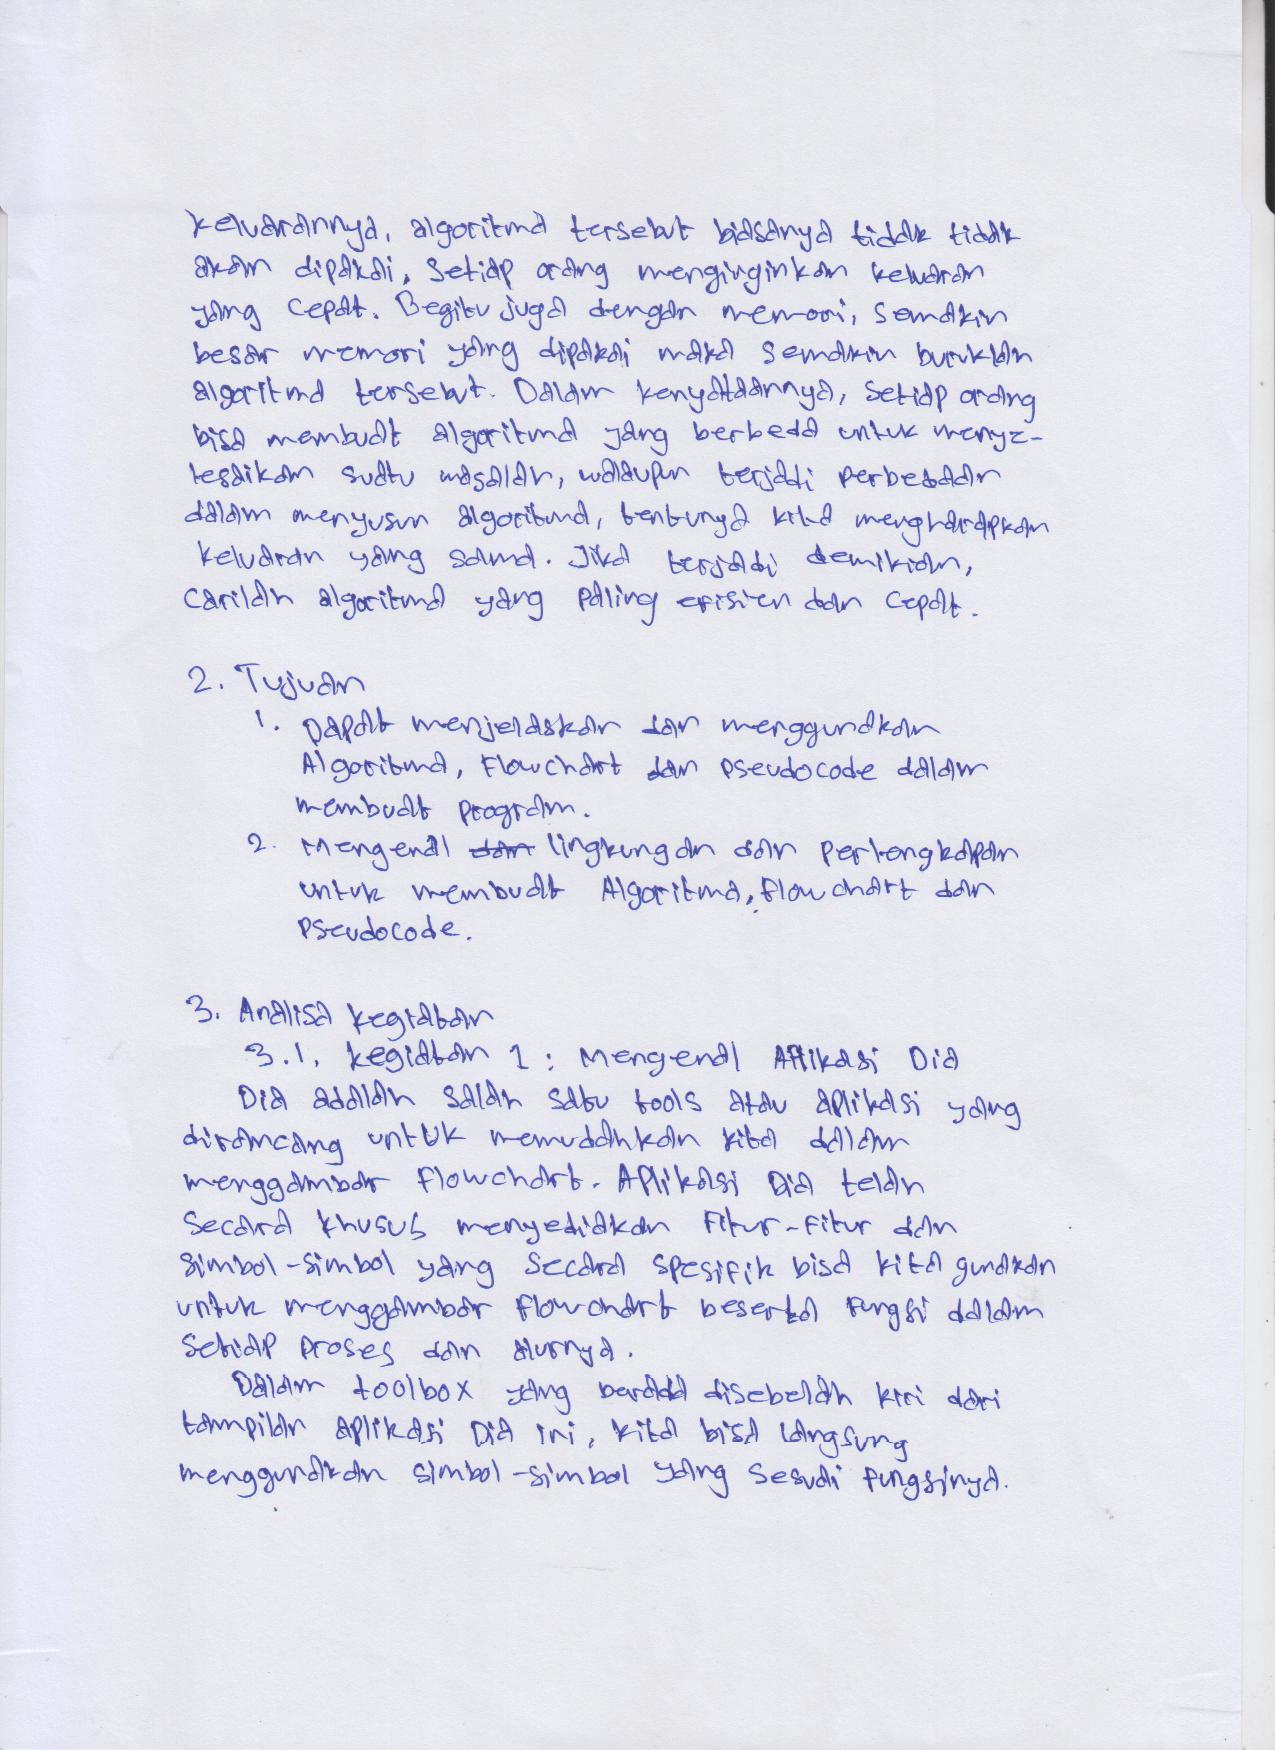 keluarannya, algoritma tersebut biasanya tidak tidak
akan dipakai, setiap orang menginginkan keluaran
yang cepat. Begitu juga dengan memori, semakin
besar memori yang dipakai maka semakin buruklah
algoritma tersebut. Dalam kenyataannya, setiap orang
bisa membuat algoritma yang berbeda untuk menye-
lesaikan suatu masalah, walaupun terjadi perbedaan
dalam menyusun algoritma, tentunya kita mengharapkan
keluaran yang sama. Jika terjadi demikian,
carilah algoritma yang paling efisien dan cepat.
2. Tujuan
1. Dapat menjelaskan dan menggunakan
Algoritma, Flowchart dan pseudocode dalam
membuat program.
2. Mengenal dan lingkungan dan perlengkapan
untuk membuat Algoritma, flowchart dan
pseudocode.
3. Analisa kegiatan
3.1. kegiatan 1 : Mengenal Aplikasi Dia
Dia adalah salah satu tools atau aplikasi yang
dirancang untuk memudahkan kita dalam
menggambar flowchart. Aplikasi Dia telah
secara khusus menyediakan fitur-fitur dan
simbol-simbol yang secara spesifik bisa kita gunakan
untuk menggambar flowchart beserta fungsi dalam
setiap proses dan alurnya.
Dalam toolbox yang berada disebelah kiri dari
tampilan aplikasi Dia ini, kita bisa langsung
menggunakan simbol-simbol yang sesuai fungsinya.